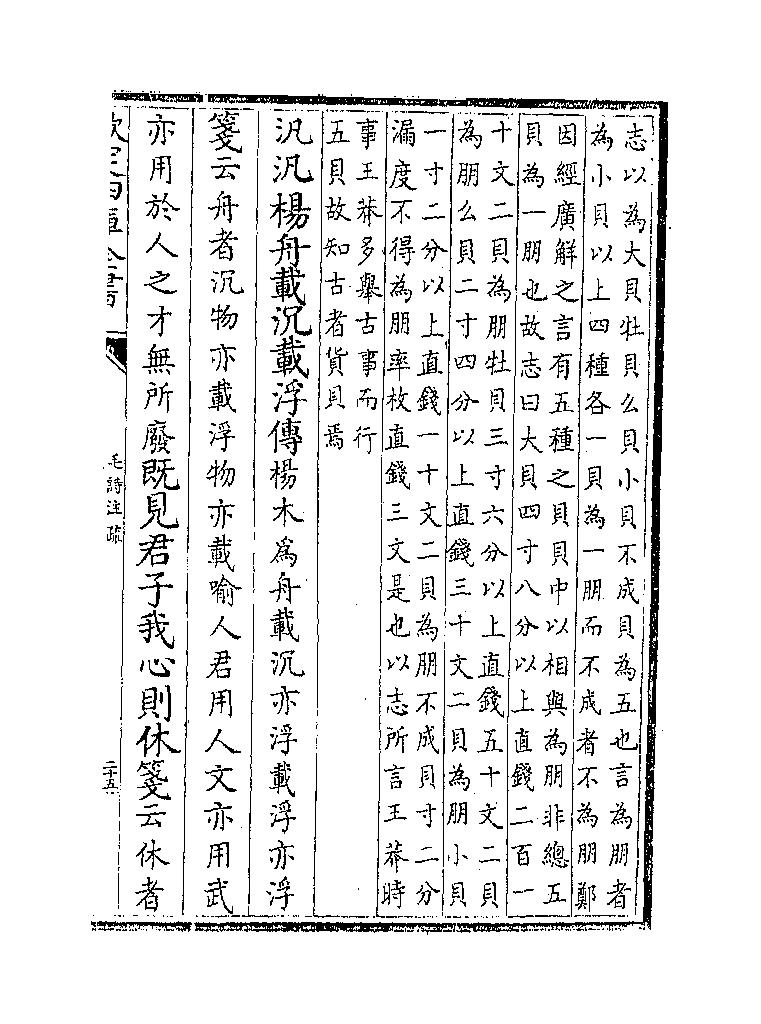 志以為大貝牡貝么貝小貝不成貝為五也言為朋者
為小貝以上四種各一貝為一朋而不成者不為朋鄭
因經廣解之言有五種之貝貝中以相與為朋非總五
貝為一朋也故志曰大貝四寸八分以上直錢二百一
十文二貝為朋牡貝三寸六分以上直錢五十文二貝
為朋么貝二寸四分以上直錢三十文二貝為朋小貝
一寸二分以上直錢一十文二貝為朋不成貝寸二分
漏度不得為朋率枚直錢三文是也以志所言王莽時
事王莽多舉古事而行
五貝故知古者貨貝焉
汎汎楊舟載沉載浮傳楊木為舟載沉亦浮載浮亦浮
箋云舟者沉物亦載浮物亦載喻人君用人文亦用武
亦用於人之才無所廢既見君子我心則休箋云休者
欽定四庫全書
毛詩注疏
二十五